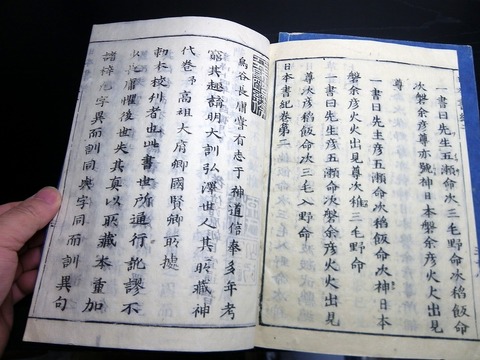 一書曰先生彦五瀬命次三毛野命次稻飯命
次磐余彦尊亦號神日本磐余彦火火出見
尊
一書曰先生彦五瀬命次稻飯命次神日本
磐余彦火火出見尊次稚三毛野命
一書曰先生彦五瀬命次磐余彦火火出見
尊次彦稻飯命次三毛入野命
日本書紀卷第二
烏谷長庸嘗有志于神道信奉多年考
窮其趣講明大訓弘澤世人其所藏神
代卷予高祖大府卿國賢卿所據
勅本校刋者也此書世所通行訛謬不
少長庸懼後世失其真以所藏本重加
諸梓凡字異而訓同與字同而訓異句